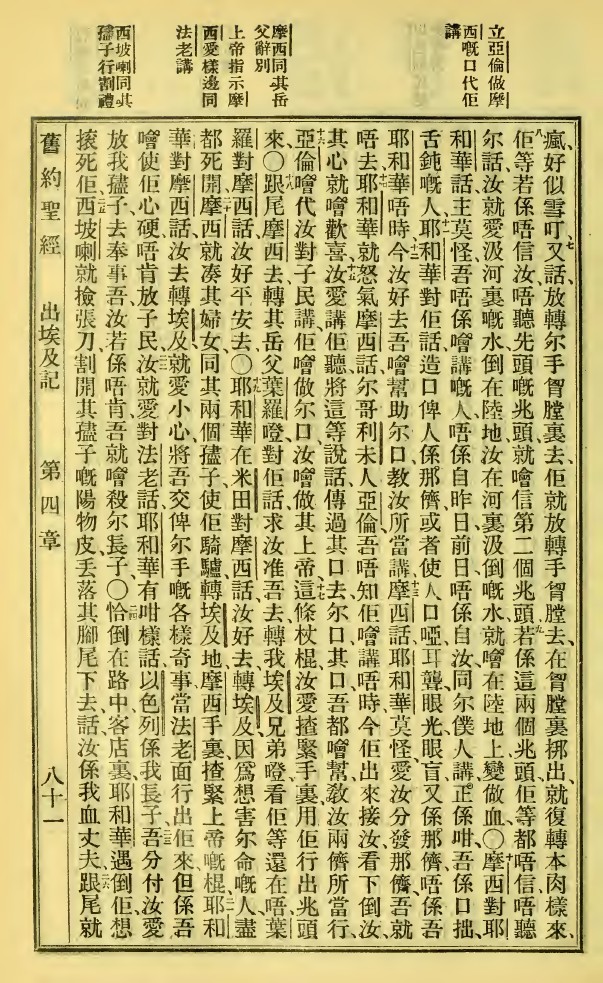 立亞倫做摩
西嘅口代佢
講
摩西同其岳
父辭別
上帝指示摩
西愛樣邊同
法老講
西坡喇同其
孻子行割禮
瘋、好似雪吖、七又話、放轉尔手胷膛裏去、佢就放轉手胷膛去、在胷膛裏挪出、就復轉本肉樣來、
八佢等若係唔信汝、唔聽先頭嘅兆頭、就會信第二個兆頭、九若係這兩個兆頭、佢等都唔信、唔聽
尔話、汝就愛汲河裏嘅水、倒在陸地、汝在河裏汲倒嘅水、就噲在陸地上變做血、〇十摩西對耶
和華話、主莫怪、吾唔係噲講嘅人、唔係自昨日前日、唔係自汝同尔僕人講、正係咁、吾係口拙、
舌鈍嘅人、十一耶和華對佢話、造口俾人係那儕、或者使人口啞、耳聾、眼光、眼盲、又係那儕、唔係吾
耶和華唔時、十二今汝好去、吾噲幫助尔口、教汝所當講、十三摩西話、耶和華莫怪、愛汝分發那儕、吾就
唔去、十四耶和華就怒氣摩西、話、尔哥利未人亞倫、吾唔知佢噲講唔時、今佢出來接汝、看下倒汝、
其心就噲歡喜、十五汝愛講佢聽、將這等說話傳過其口去、尔口其口、吾都噲幫、教汝兩儕所當行、
十六亞倫噲代汝對子民講、佢噲做尔口、汝噲做其上帝、十七這條杖棍、汝愛揸緊手裏、用佢行出兆頭
來、〇十八跟尾摩西去轉其岳父葉羅噔、對佢話、求汝准吾去轉我埃及兄弟噔、看佢等還在唔、葉
羅對摩西話、汝好平安去、〇十九耶和華在米田對摩西話、汝好去轉埃及、因爲想害尔命嘅人、盡
都死開、二十摩西就湊其婦女、同其兩個孻子、使佢騎驢、轉埃及地、摩西手裏揸緊上帝嘅棍、二一耶和
華對摩西話、汝去轉埃及、就愛小心、將吾交俾尔手嘅各樣奇事、當法老面行出佢來、但係吾
噲使佢心硬、唔肯放子民、二二汝就愛對法老話、耶和華有咁樣話、以色列係我長子、二三吾分付汝愛
放我孻子去奉事吾、汝若係唔肯、吾就噲殺尔長子、〇二四恰倒在路中客店裏、耶和華遇倒佢、想
㨆死佢、二五西坡喇就撿張刀、割開其孻子嘅陽物皮、丟落其腳尾下去、話、汝係我血丈夫、二六跟尾就
舊約聖經 出埃及記 第四章 八十一